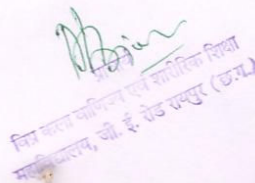 प्राचार्य
विप्र कला वाणिज्य एवं शारीरिक शिक्षा
महाविद्यालय, जी. ई. रोड रायपुर (छ.ग.)